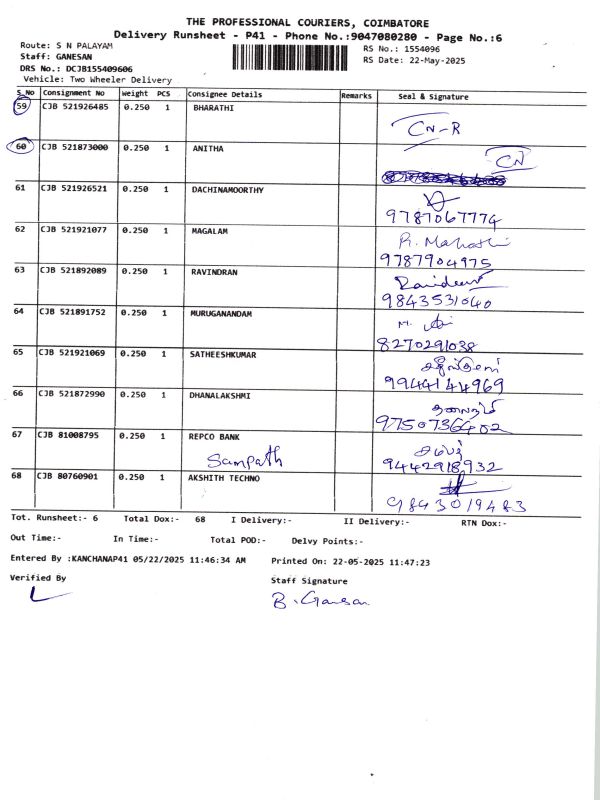 THE PROFESSIONAL COURIERS, COIMBATORE
Delivery Runsheet - P41 - Phone No.:9047080280 - Page No.:6
Route: S N PALAYAM
RS No.: 1554096
Staff: GANESAN
RS Date: 22-May-2025
DRS No.: DCJB155409606
Vehicle: Two Wheeler Delivery
S.No Consignment No Weight PCS Consignee Details Remarks Seal & Signature
59 CJB 521926485 0.250 1 BHARATHI
CN-R
60 CJB 521873000 0.250 1 ANITHA
CN
61 CJB 521926521 0.250 1 DACHINAMOORTHY
9787067774
62 CJB 521921077 0.250 1 MAGALAM
9787904975
63 CJB 521892089 0.250 1 RAVINDRAN
9843531040
64 CJB 521891752 0.250 1 MURUGANANDAM
8270291038
65 CJB 521921069 0.250 1 SATHEESHKUMAR
9944144969
66 CJB 521872990 0.250 1 DHANALAKSHMI
9750736402
67 CJB 81008795 0.250 1 REPCO BANK
Sampath
9442918932
68 CJB 80760901 0.250 1 AKSHITH TECHNO
9843019483
Tot. Runsheet:- 6 Total Dox:- 68 I Delivery:- II Delivery:- RTN Dox:-
Out Time:- In Time:- Total POD:- Delvy Points:-
Entered By :KANCHANAP41 05/22/2025 11:46:34 AM Printed On: 22-05-2025 11:47:23
Verified By Staff Signature
B. Ganesan